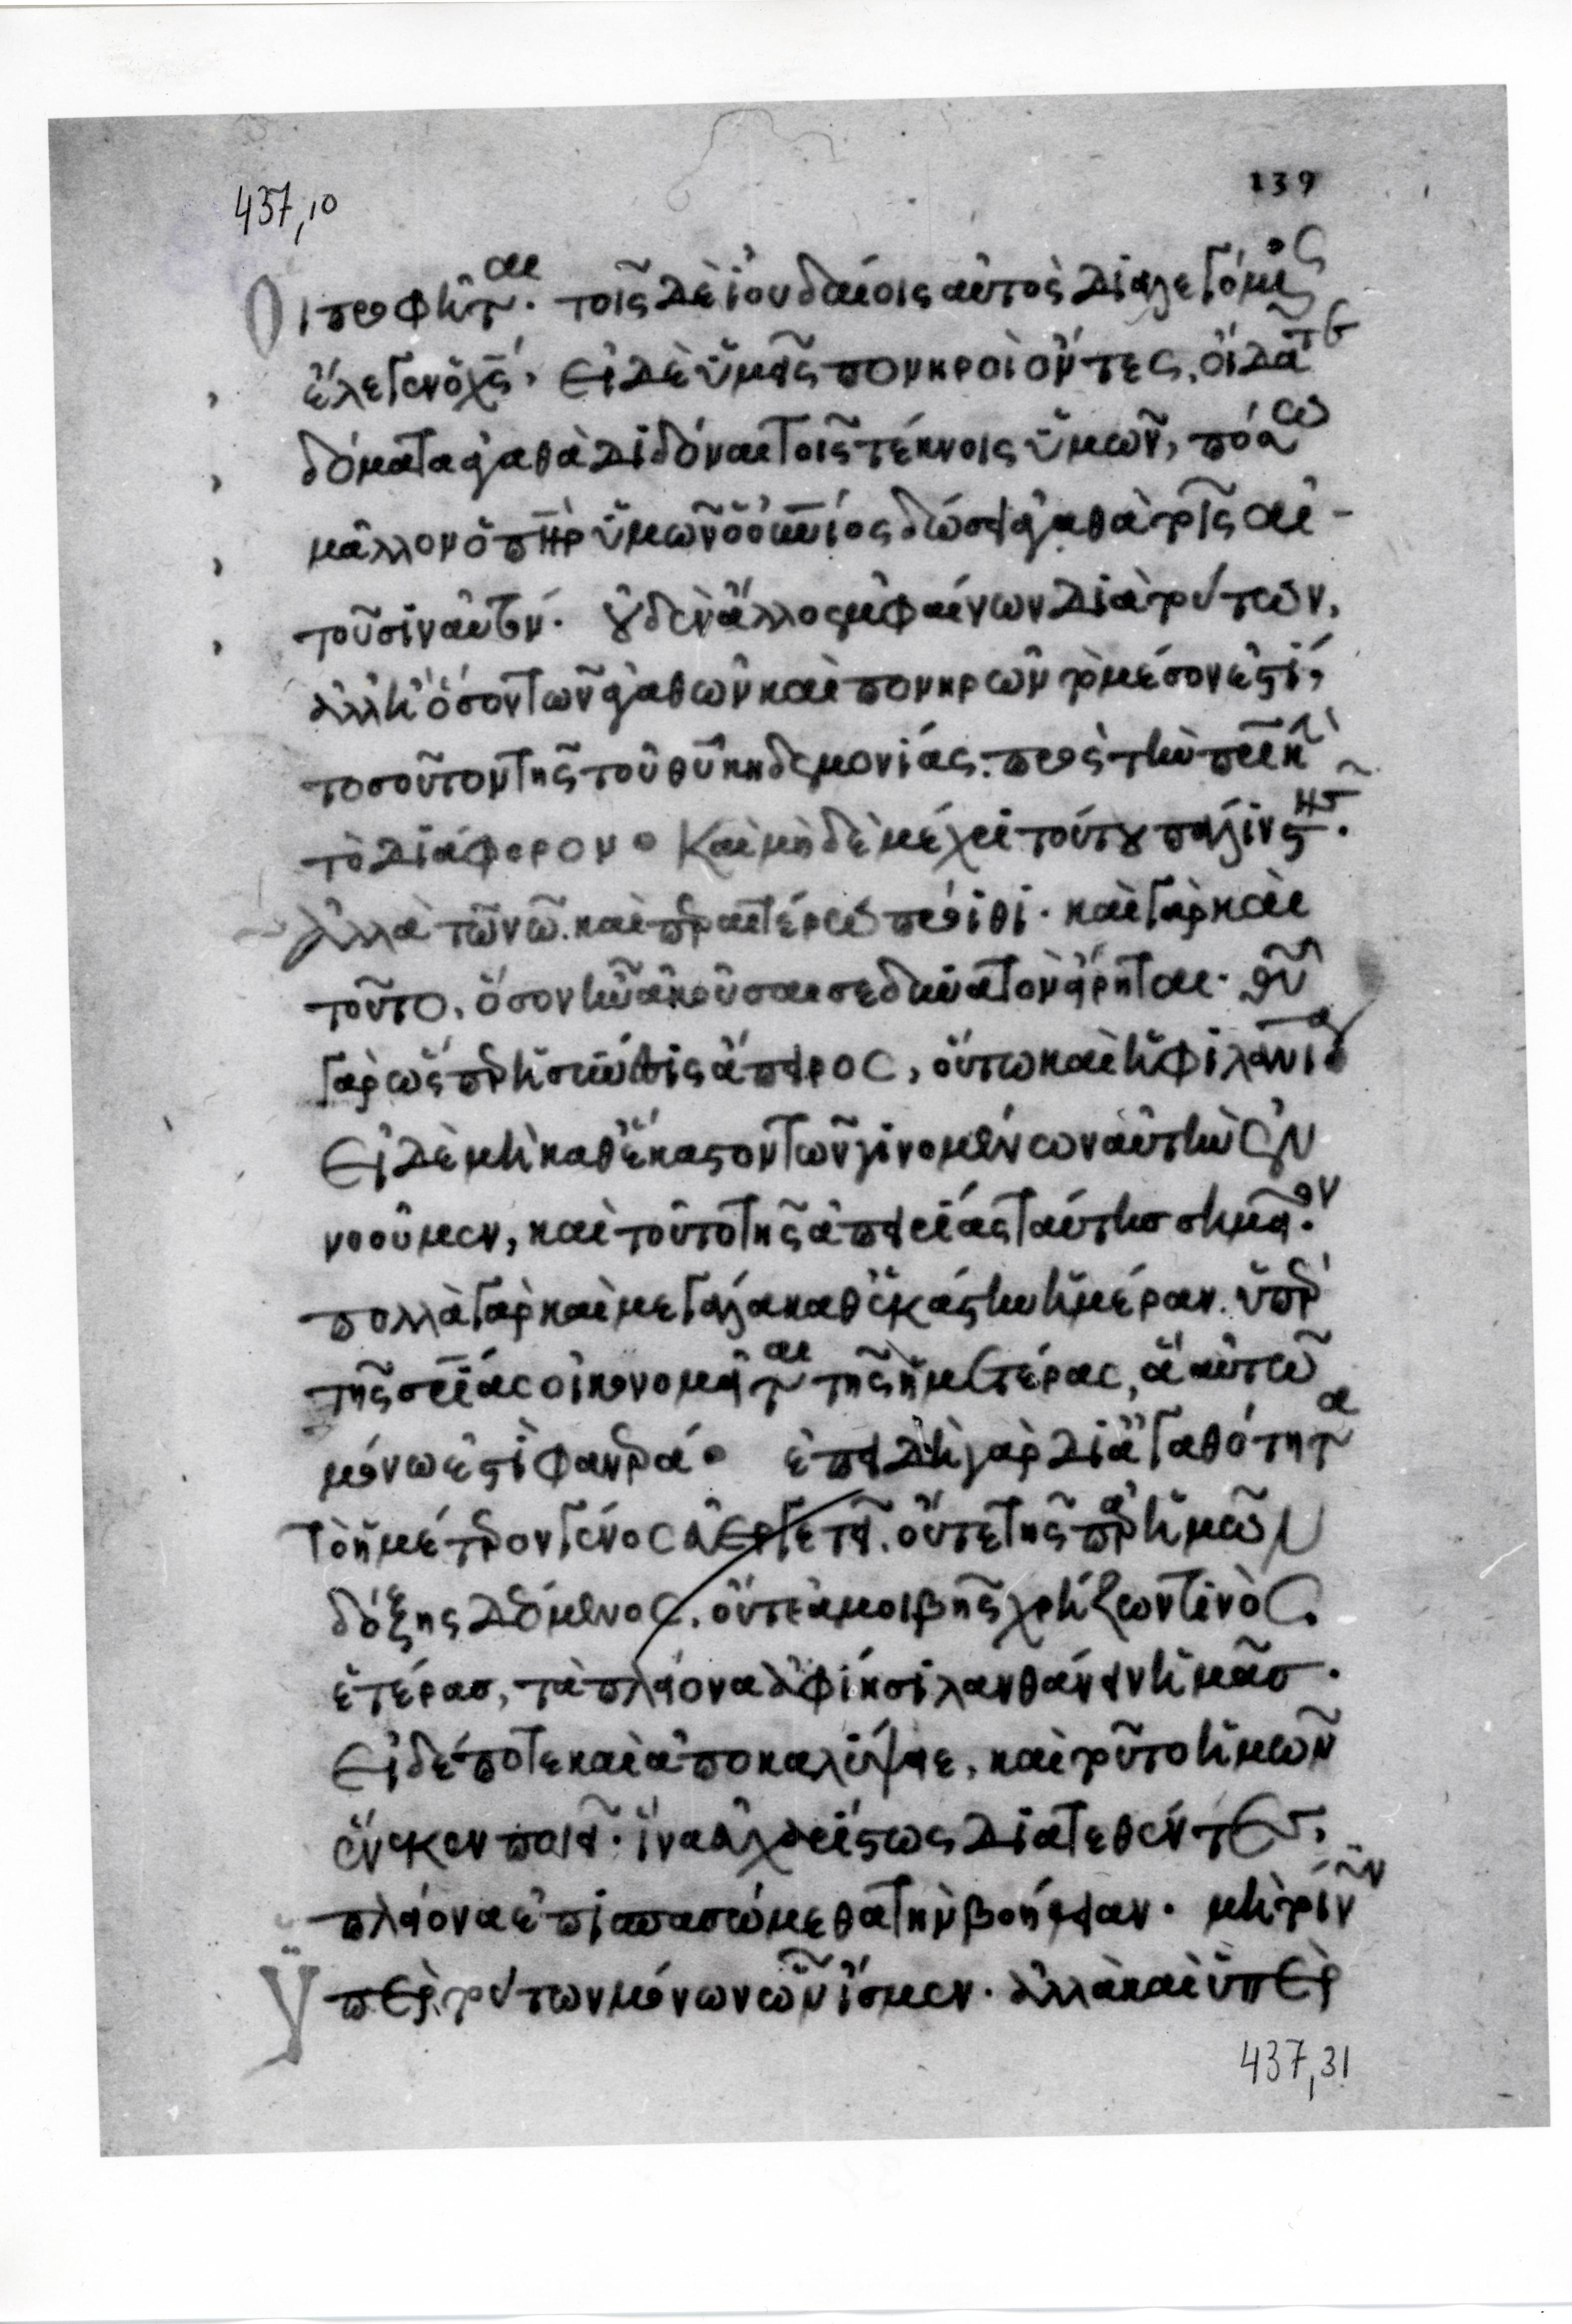 437,10
139
Οἱ προφῆται. τοῖς δὲ ἰουδαίοις αὐτὸς διαλεγόμενος
ἔλεγεν ὁ χς· εἰ δὲ ὑμεῖς πονηροὶ ὄντες, οἴδατε
δόματα ἀγαθὰ διδόναι τοῖς τέκνοις ὑμῶν, πόσω
μᾶλλον ὁ πηρ ὑμῶν ὁ οὐνιος δώσει ἀγαθὰ τοῖς αἰ-
τοῦσιν αὐτόν. οὐδὲν ἄλλο ἐμφαίνων διὰ τούτων,
ἀλλ' ἢ ὅσον τῶν ἀγαθῶν καὶ πονηρῶν τὸ μέσον ἐστί,
τοσοῦτον τῆς τοῦ θυ κηδεμονίας πρὸς τὴν πρικὴν
τὸ διάφορον. Καὶ μηδὲ μέχρι τούτου πάλιν στῆς.
ἀλλὰ τῷ νῷ καὶ περαιτέρω πρόϊθι. καὶ γὰρ καὶ
τοῦτο, ὅσον ἦν ἀκοῦσαί σε δυνατὸν εἴρηται. τοῦ
γὰρ ὥσπερ ἡ σύνεσις ἄπειρος, οὕτω καὶ ἡ φιλανια
Εἰ δὲ μὴ καθ' ἕκαστον τῶν γινομένων αὐτὴν ἐν
νοοῦμεν, καὶ τοῦτο τῆς ἀπειρίας ταύτης σημεῖον.
πολλὰ γὰρ καὶ μεγάλα καθ' ἑκάστην ἡμέραν ὑπὲρ
τῆς σρίας οἰκονομεῖται τῆς ἡμετέρας, ἃ αὐτῶ
μόνω ἐστὶ φανερά. ἐπειδὴ γὰρ δι' ἀγαθότητα
τὸ ἡμέτερον γένος εὐεργετεῖ. οὔτε τῆς παρ' ἡμῶν
δόξης δεόμενος, οὔτε ἀμοιβῆς χρήζων τινὸς
ἑτέρας, τὰ πλείονα ἀφίησι λανθάνειν ἡμᾶς.
Εἰ δέ ποτε καὶ ἀποκαλύψαι, καὶ τοῦτο ἡμῶν
ἕνεκεν ποιεῖ. ἵνα εὐχαρίστως διατεθέντες,
πλείονα ἐπισπασώμεθα τὴν βοήθειαν. μὴ τοίνυν
Ὑπὲρ τούτων μόνων ὧν ἴσμεν. ἀλλὰ καὶ ὑπὲρ
437,31